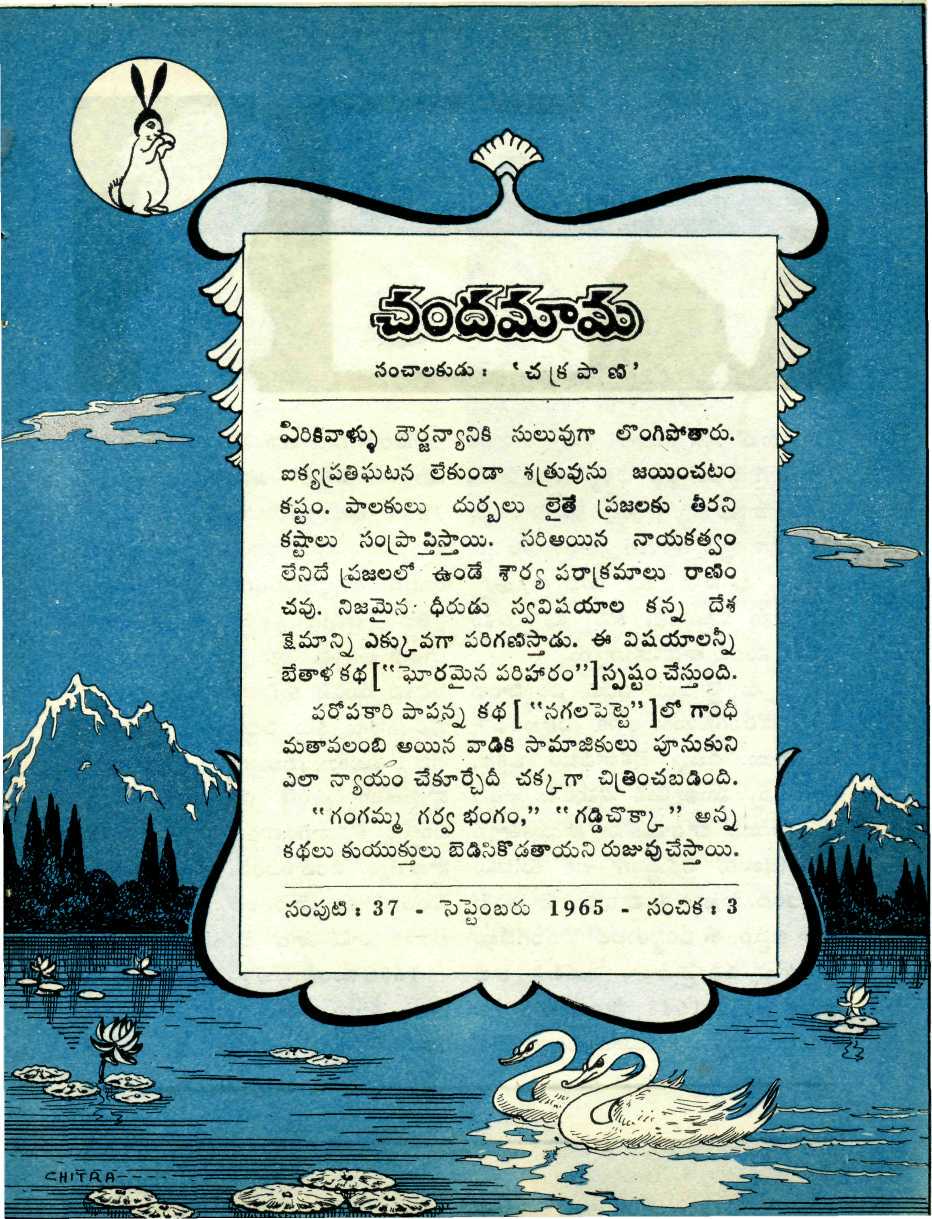 చందమామ
సంచాలకుడు : ‘చక్రపాణి’
పిరికివాళ్ళు దౌర్జన్యానికి సులువుగా లొంగిపోతారు.
ఐక్యప్రతిఘటన లేకుండా శత్రువును జయించటం
కష్టం. పాలకులు దుర్బలు లైతే ప్రజలకు తీరని
కష్టాలు సంప్రాప్తిస్తాయి. సరిఅయిన నాయకత్వం
లేనిదే ప్రజలలో ఉండే శౌర్య పరాక్రమాలు రాణిం
చవు. నిజమైన ధీరుడు స్వవిషయాల కన్న దేశ
క్షేమాన్ని ఎక్కువగా పరిగణిస్తాడు. ఈ విషయాలన్నీ
బేతాళ కథ [“ఘోరమైన పరిహారం”] స్పష్టం చేస్తుంది.
పరోపకారి పాపన్న కథ [“నగలపెట్టె”]లో గాంధీ
మతావలంబి అయిన వాడికి సామాజికులు పూనుకుని
ఎలా న్యాయం చేకూర్చేదీ చక్కగా చిత్రించబడింది.
“గంగమ్మ గర్వ భంగం,” “గడ్డిచొక్కా” అన్న
కథలు కుయుక్తులు బెడిసికొడతాయని రుజువుచేస్తాయి.
సంపుటి : 37 - సెప్టెంబరు 1965 - సంచిక : 3
CHITRA